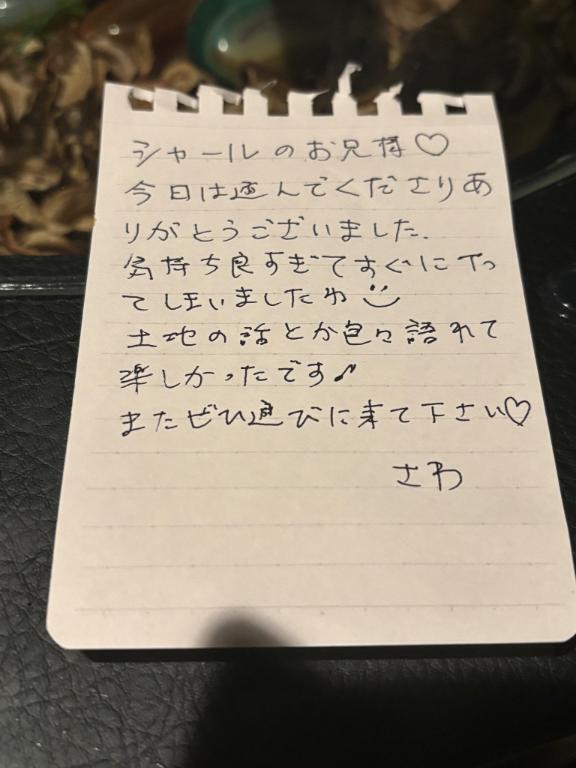 シャールのお兄様♡
今日は遊んでくださりあ
りがとうございました.
気持ち良すぎてすぐにイっ
てしまいましたわ
土地の話とか色々語れて
楽しかったです♪
またぜひ遊びに来て下さい♡
さわ